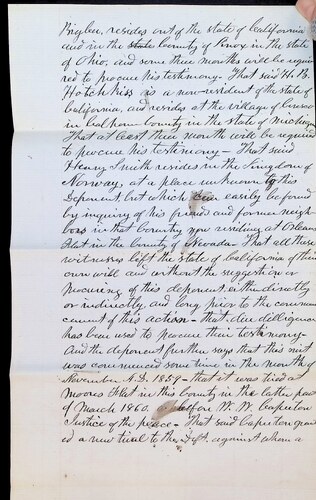 Bigler, resides out of the state of California
and in the state County of Knox in the state
of Ohio, and some three months will be requi
red to procure his testimony. That said H. B.
Hotchkiss is a non-resident of the state of
California, and resides at the village of
in Calhoun County in the state of Michigan
That at least three month will be required
to procure his testimony – That said
Henry Smith resides in the Kingdom of
Norway, at a place unknown to this
Deponent, but which can easily be found
by inquiry of his friends and former neigh
bors in that Country now residing at Orleans
Flat in the County of Nevada. That all these
witnesses left the state of California of their
own will and without the suggestion or
procuring of this deponent either directly
or indirectly, and long prior to the commen
cement of this action – that due dilligence
has been used to procure their testimony –
And the deponent further says that this suit
was commenced some time in the month of
November A.D. 1859 – that it was tried at
Moores Flat in this County in the latter part
of March 1860. before W. W. Caperton
Justice of the peace – That said Caperton grant
ed a new trial to the Deft. against whom a